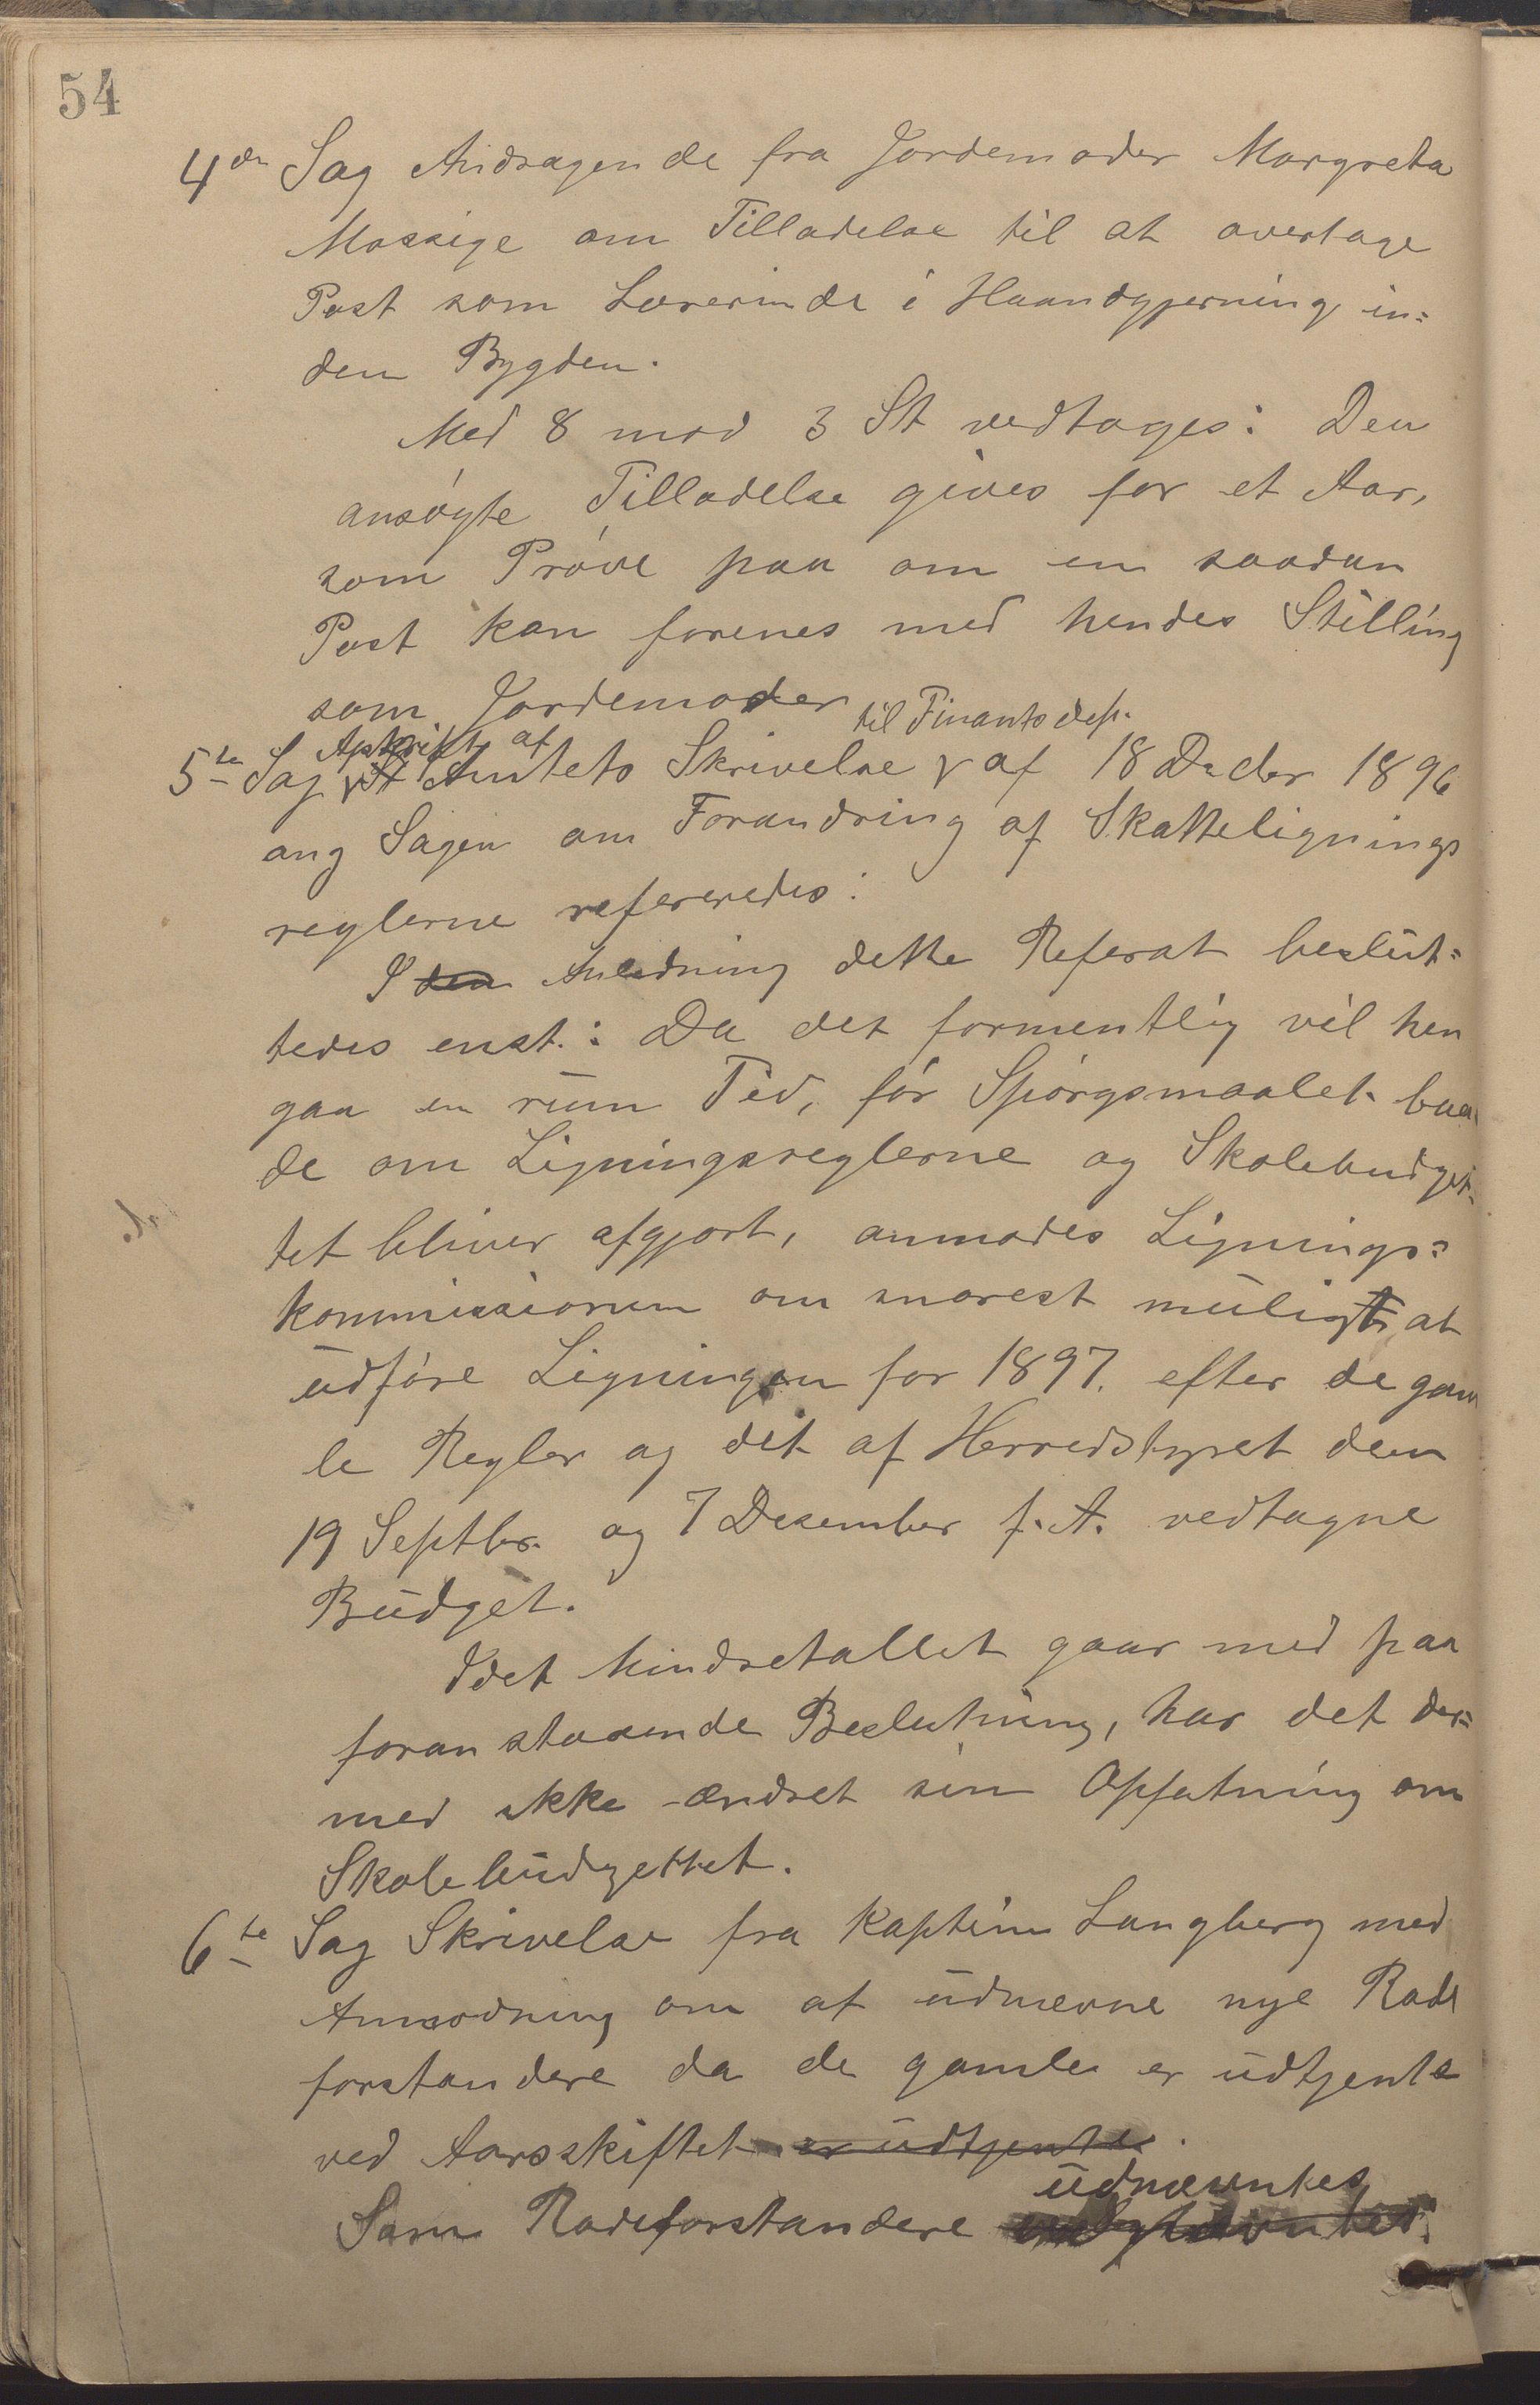 54
4de Sag Andragende fra Jordemoder Margreta
Mossige om Tilladelse til at overtage
Post som Lærerinde i Haandgjerning in=
den Bygden.
Med 8 mod 3 St vedtoges: Den
ansøgte Tilladelse gives for et Aar,
som Prøve paa om en saadan
Post kan forenes med hendes Stilling
som Jordemoder
til Finantsdep.
Afskrift af
5te Sag Amtets Skrivelse af 18 Decbr 1896
ang Sagen om Forandring af Skattelignings
reglerne refereredes:
I den Anledning dette Referat beslut=
tedes enst.: Da det formentlig vil hen
gaa en rum Tid, før Spørgsmaalet baa
de om Ligningsreglerne og Skolebudget=
tet bliver afgjort, anmodes Lignings=
kommissionen om snarest muligt at
udføre Ligningen for 1897. efter de gam
le Regler og det af Herredstyret den
19 Septbr. og 7 Desember f. A. vedtagne
Budget.
Idet Mindretallet gaar med paa
foranstaaende Beslutning, har det der=
med ikke ændret sin Opfatning om
Skolebudgettet.
6te Sag Skrivelse fra Kaptein Langberg med
Anmodning om at udnævne nye Rode
forstandere da de gamle er udtjente
ved Aarsskiftet er udtjente.
udnævntes
Som Rodeforstandere